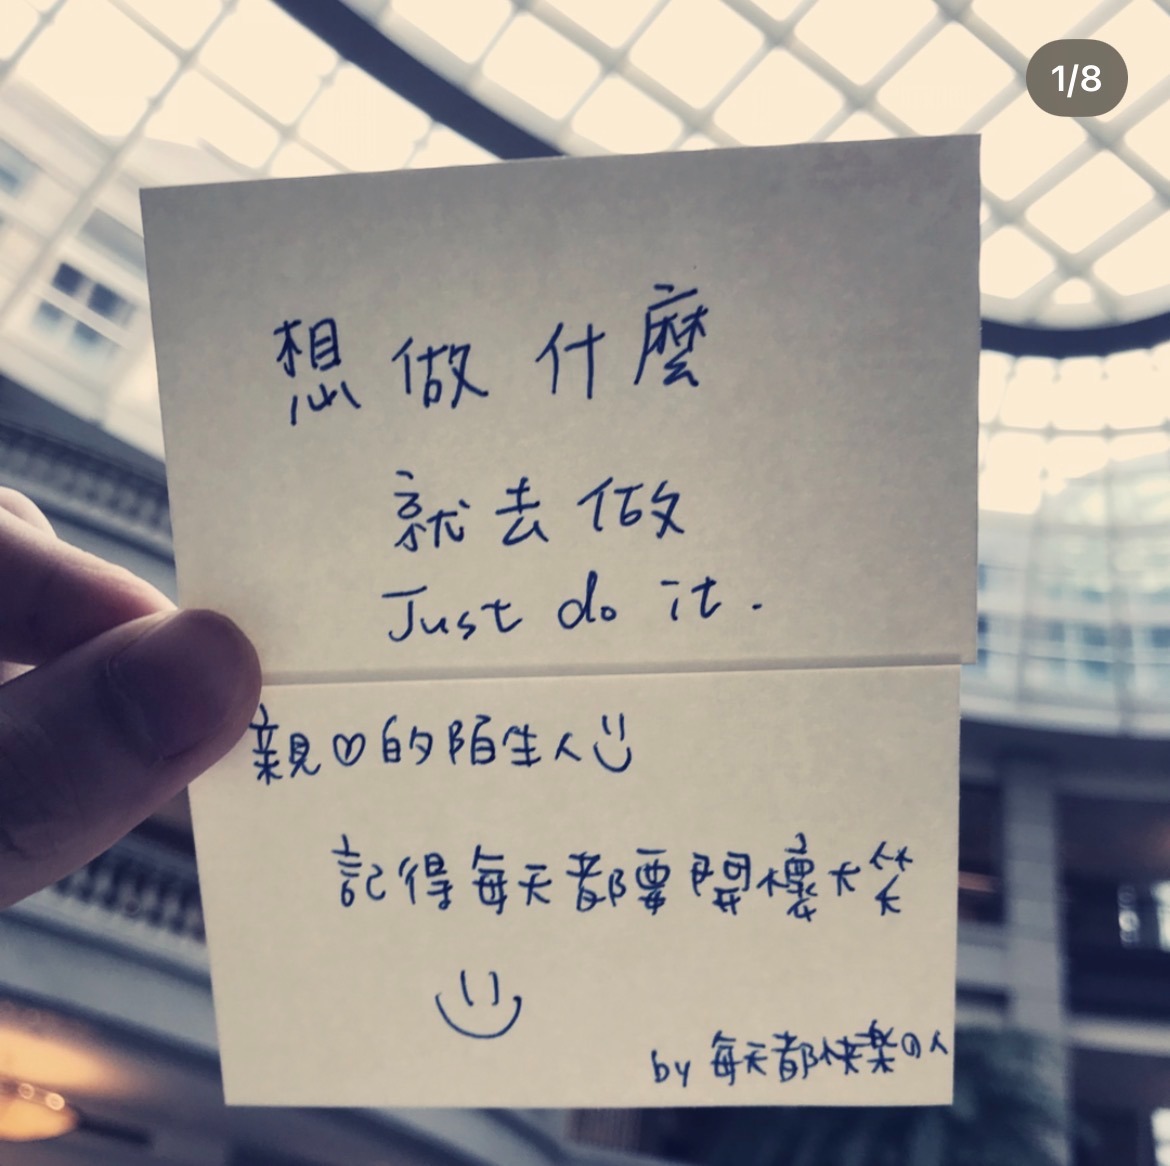 1/8
想做什麼
就去做
Just do it.
親♡的陌生人
記得每天都要開懷大笑
by 每天都快樂の人